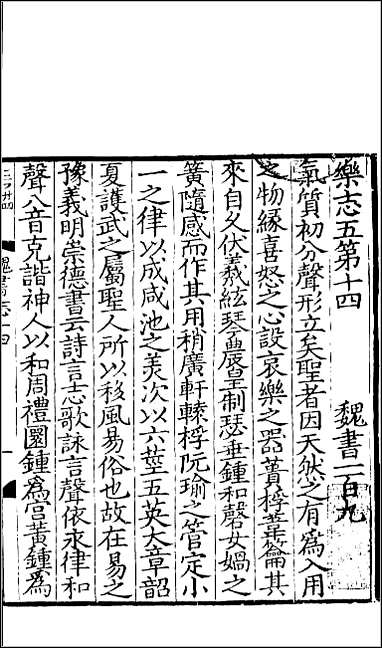 樂志五第十四 魏書一百九
氣質初分聲形立矣聖者因天然之有爲入用
之物緣喜怒之心設哀樂之器蕢桴葦籥其
來自久伏羲絃琴農皇制瑟垂鍾和磬女媧之
簧隨感而作其用稍廣軒轅桴阮瑜之管定小
一之律以成咸池之美次以六莖五英大章韶
夏護武之屬聖人所以移風易俗也故在易之
豫義明崇德書云詩言志歌詠言聲依永律和
聲八音克諧神人以和周禮圜鍾爲宮黃鍾爲
魏書志十四